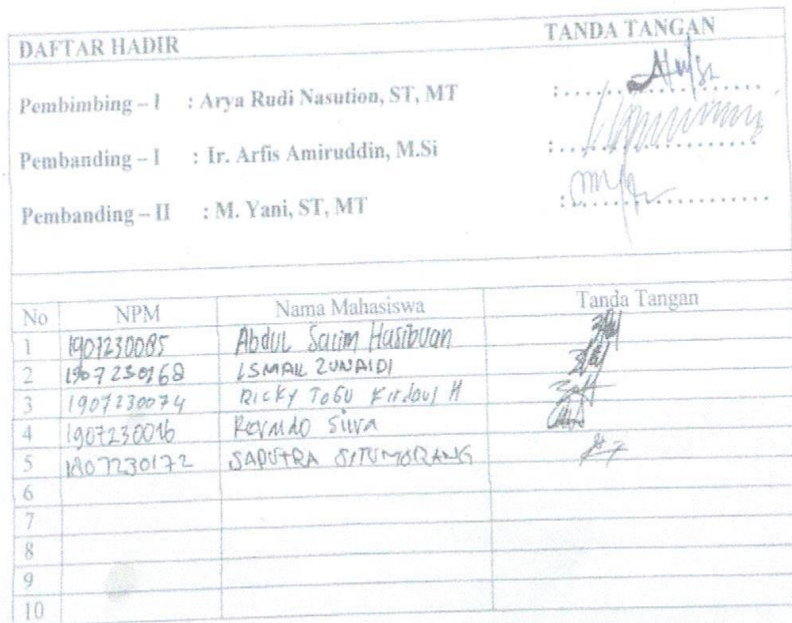 DAFTAR HADIR TANDA TANGAN
Pembimbing – I : Arya Rudi Nasution, ST, MT :....................
Pembanding – I : Ir. Arfis Amiruddin, M.Si :....................
Pembanding – II : M. Yani, ST, MT :....................
No NPM Nama Mahasiswa Tanda Tangan
1 1907230085 Abdul Salim Hasibuan
2 1907230168 ISMAIL ZUNAIDI
3 1907230074 RICKY TOGU H
4 1907230016 Silva
5 1907230172 SAPUTRA SITUMORANG
6
7
8
9
10